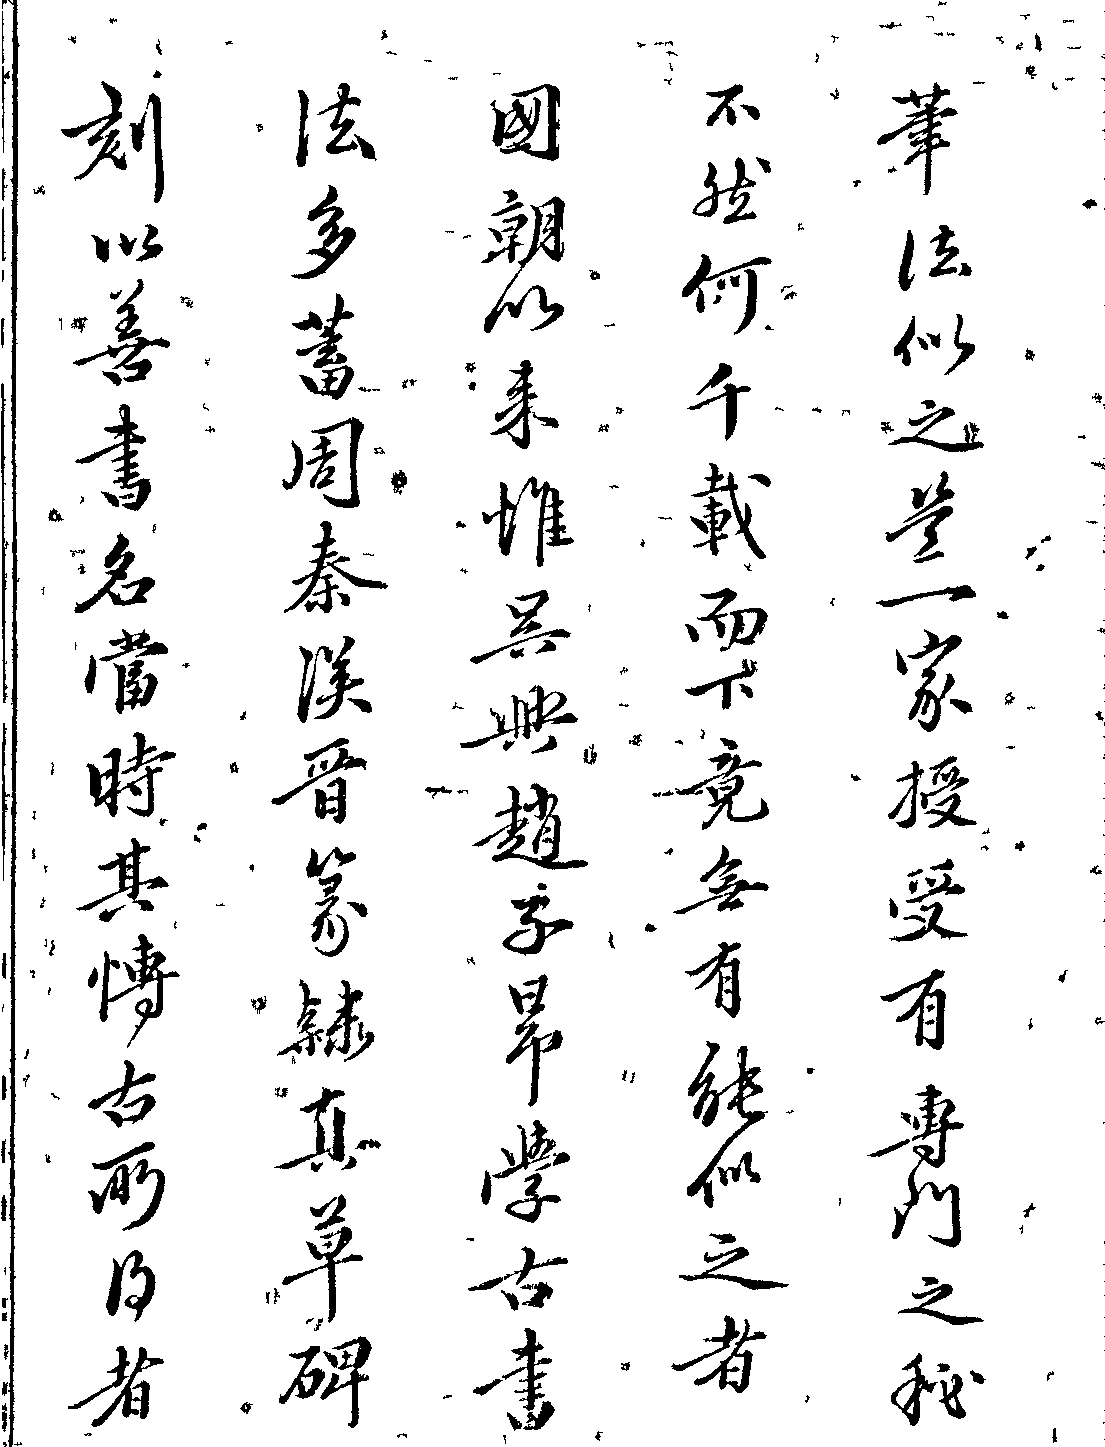 筆法似之豈一家授受有專門之秘
不然何千載而下竟無有能似之者
國朝以来惟吳興趙子昂學古書
法多蓄周秦漢晉篆隸真草碑
刻以善書名當時其博古所得者